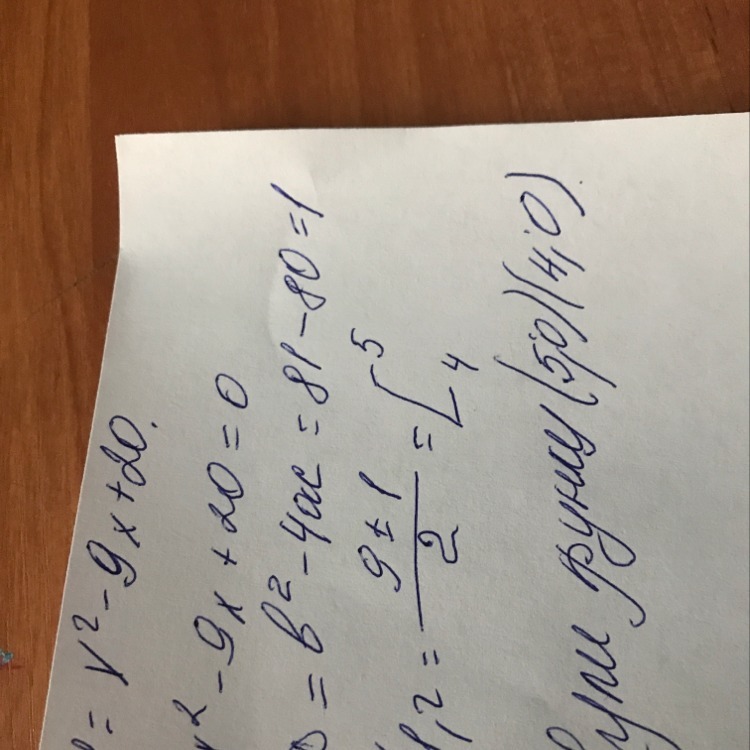 = x² - 9x + 20.
x² - 9x + 20 = 0
D = b² - 4ac = 81 - 80 = 1
1,2 = \frac{9 ± 1}{2} = [ 5 4
функц (5;0) (4;0)